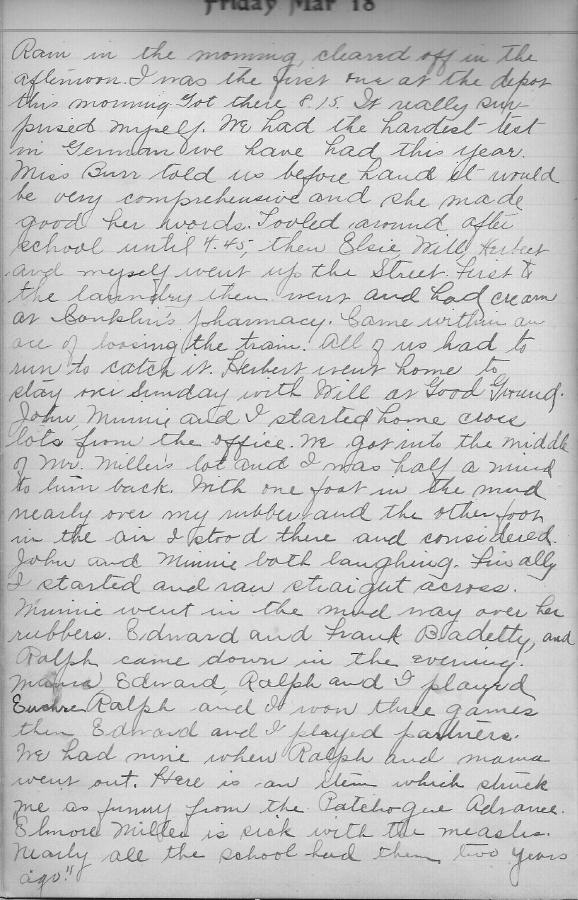 Friday Mar 18
Rain in the morning, cleared off in the
afternoon. I was the first one at the depot
this morning Got there 8.15. It really sur-
prised myself. We had the hardest test
in German we have had this year.
Miss Burr told us before hand it would
be very comprehensive and she made
good her words. Fooled around after
school until 4.45, then Elsie, Will, Herbert
and myself went up the Street. First to
the laundry then went and had cream
at Conklin's pharmacy. Came within an
ace of loosing the train. All of us had to
run to catch it. Herbert went home to
stay over Sunday with Will at Good Ground.
John, Minnie and I started home cross
lots from the office. We got into the middle
of Mr. Miller's lot and I was half a mind
to turn back. With one foot in the mud
nearly over my rubber and the other foot
in the air I stood there and considered.
John and Minnie both laughing. Finally
I started and ran straight across.
Minnie went in the mud way over her
rubbers. Edward and Frank Badetty, and
Ralph came down in the evening.
Mama, Edward, Ralph and I played
Euchre Ralph and I won three games
then Edward and I played partners.
We had nine when Ralph and mama
went out. Here is an item which struck
me as funny from the Patchogue Advance.
Elmore Miller is sick with the measles.
Nearly all the school had them two years
ago."